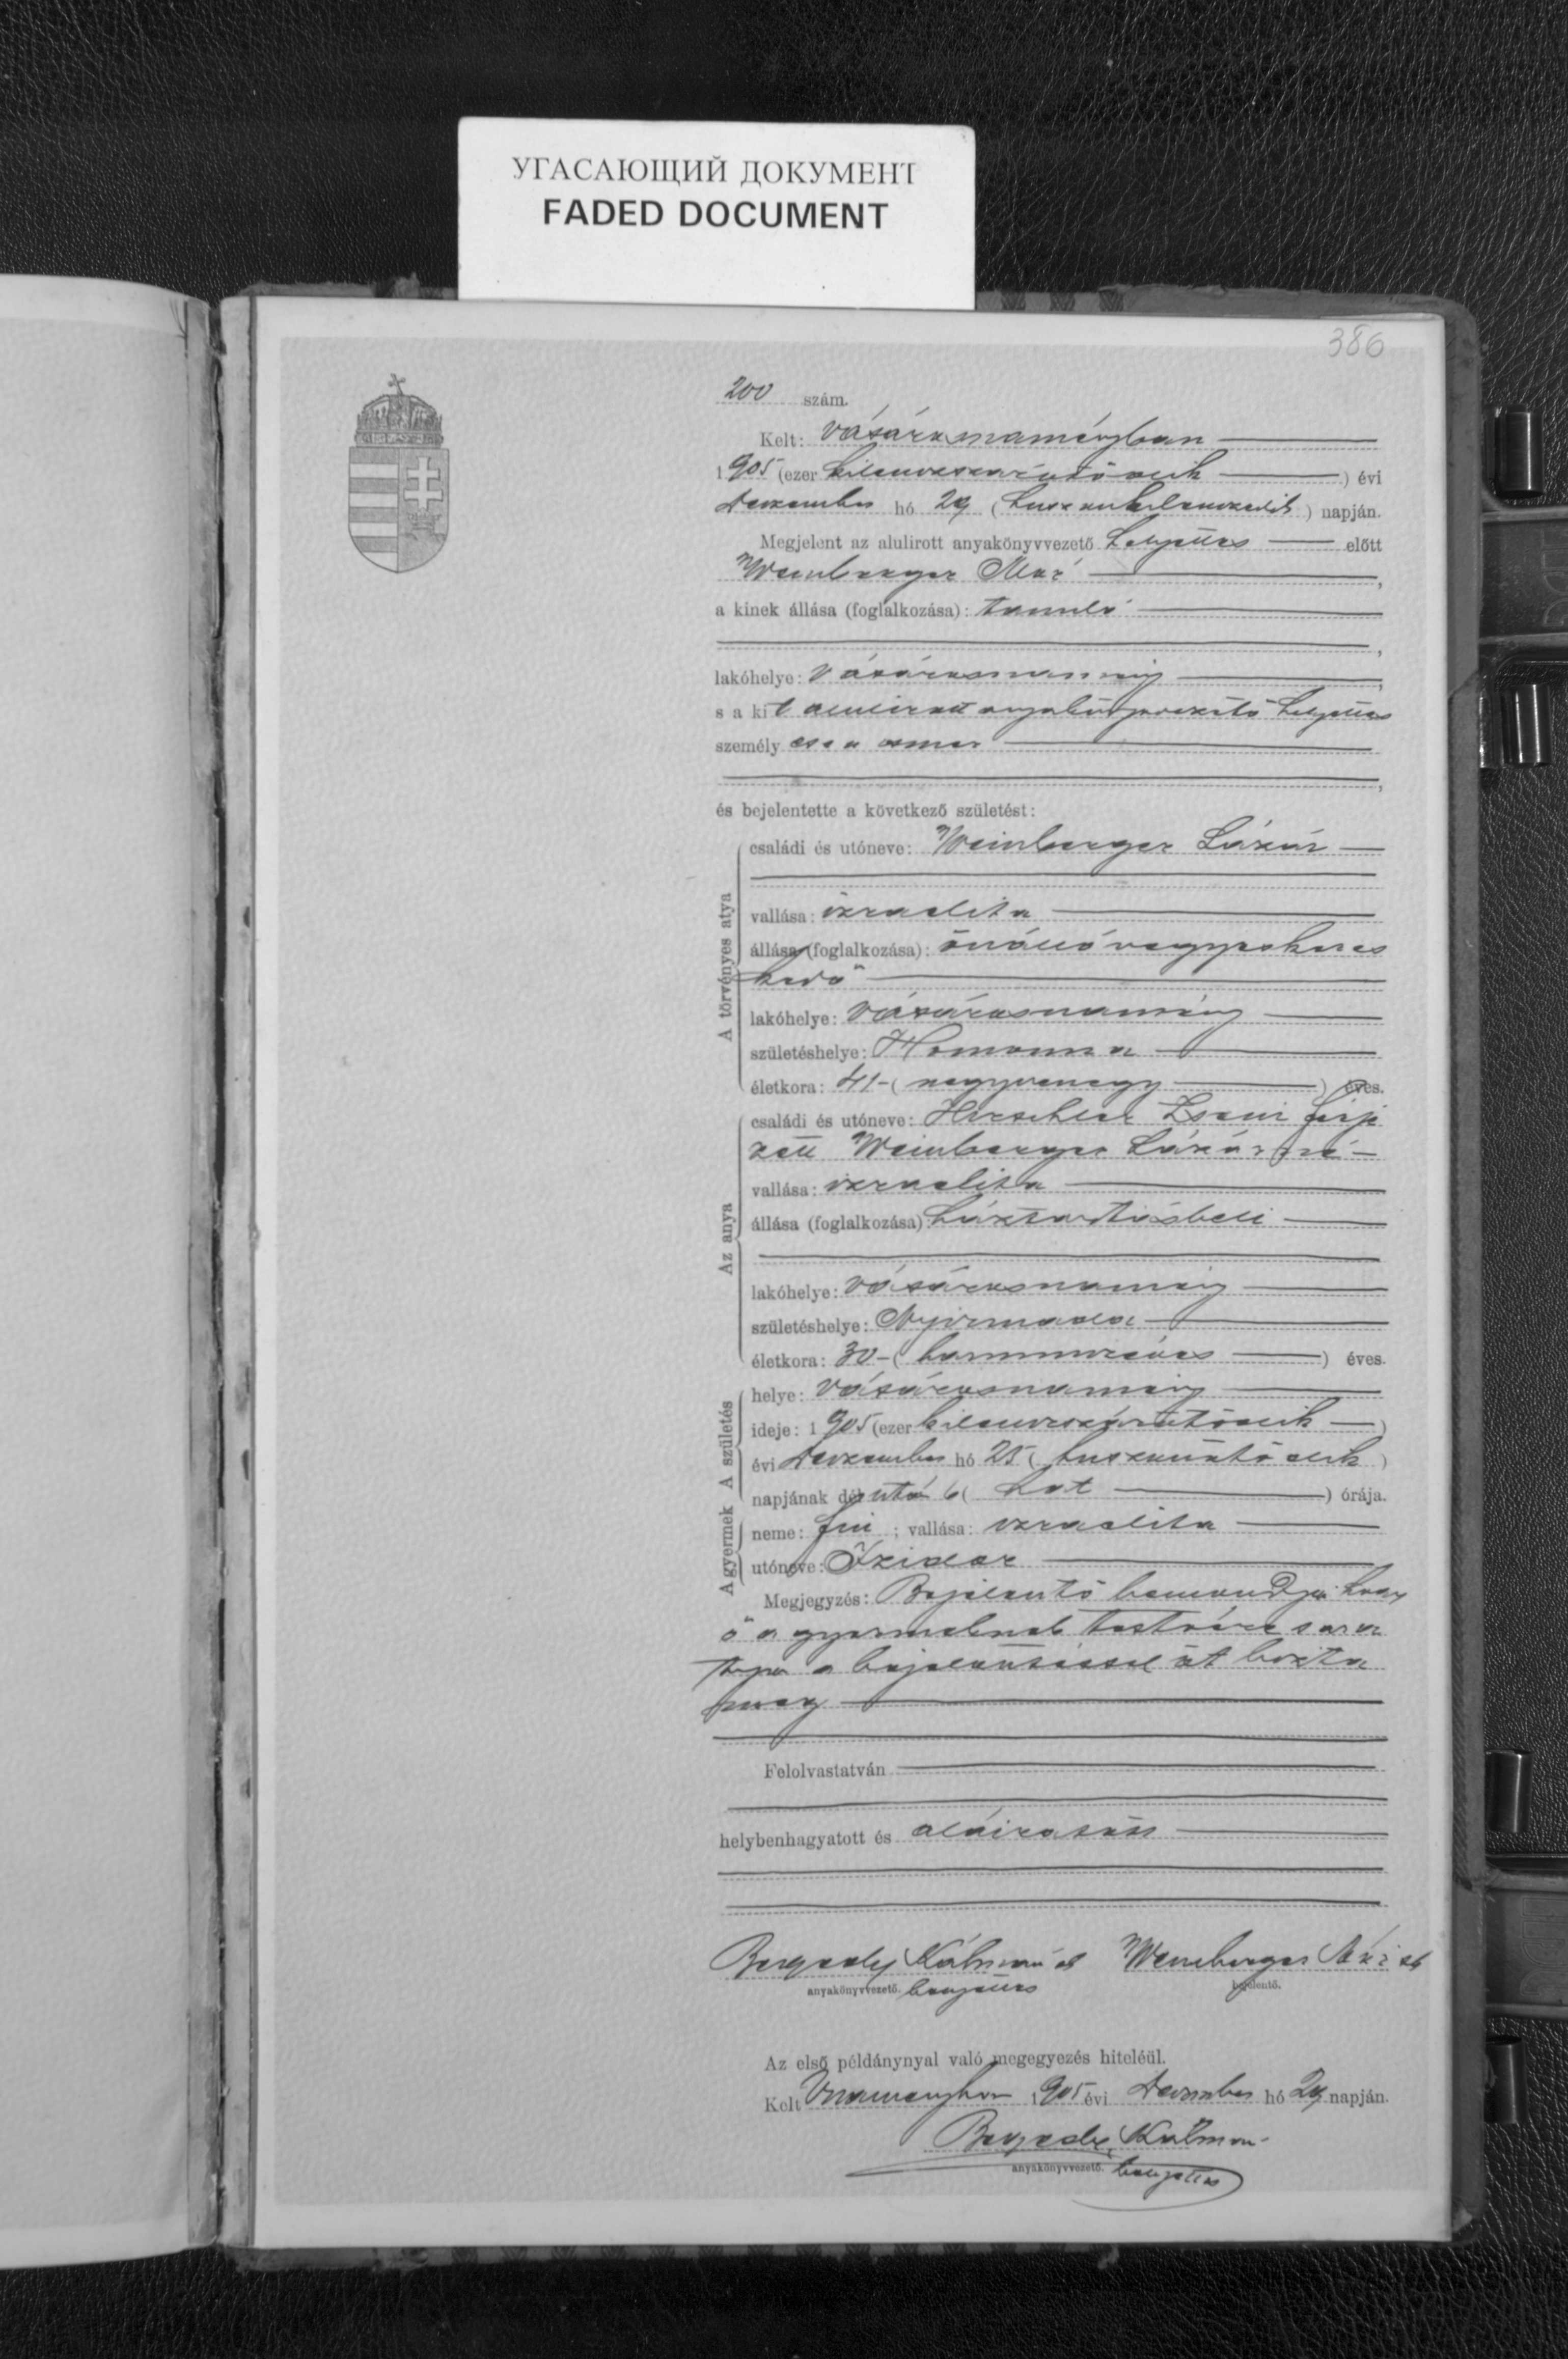 УГАСАЮЩИЙ ДОКУМЕНТ
FADED DOCUMENT
386
200 szám.
Kelt: Vásárosnaményban
1905 (ezer kilenczszázötödik) évi
Deczember hó 29 (huszonkilenczedik) napján.
Megjelent az alulirott anyakönyvvezető helyettes előtt
Weinberger Mór,
a kinek állása (foglalkozása): tanuló
lakóhelye: Vásárosnamény,
s a kit alulirott anyakönyvvezető helyettes
személyesen ismer,
és bejelentette a következő születést:
A törvényes atya
családi és utóneve: Weinberger Lázár
vallása: izraelita
állása (foglalkozása): önálló vegyeskeres
kedő
lakóhelye: Vásárosnamény
születéshelye: Homonna
életkora: 41 (negyvenegy) éves.
Az anya
családi és utóneve: Hirschler Zseni férje
zett Weinberger Lázárné
vallása: izraelita
állása (foglalkozása): háztartásbeli
lakóhelye: Vásárosnamény
születéshelye: Nyirmada
életkora: 30 (harmincz) éves.
A születés
helye: Vásárosnamény
ideje: 1905 (ezer kilenczszázötödik)
évi Deczember hó 25 (huszonötödik)
napjának délután 6 (hat) órája.
A gyermek
neme: fiú; vallása: izraelita
utóneve: Izidor
Megjegyzés: Bejelentő bemondja hogy
ő a gyermeknek testvére s az a
tyja a bejelentéssel őt bizta
meg
Felolvastatván
helybenhagyatott és aláiratott
Kálmán Weinberger Mór
anyakönyvvezető. helyettes bejelentő.
Az első példánynyal való megegyezés hiteléül.
Kelt Vnaményban 1905 évi Deczember hó 29 napján.
Kálmán
anyakönyvvezető. helyettes